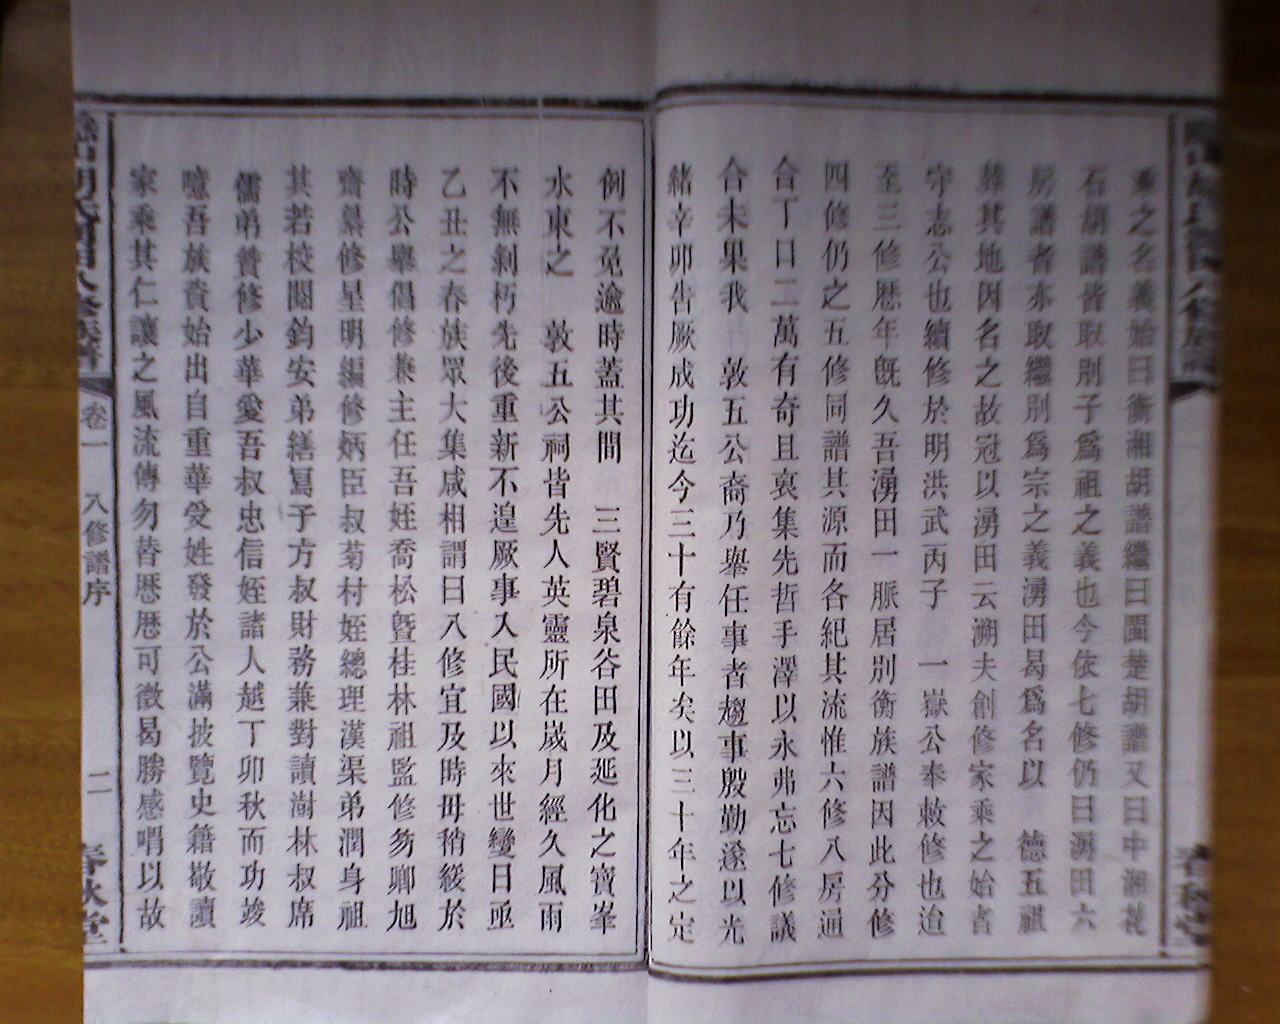 乘之名義始曰衡湘胡譜繼曰閩楚胡譜又曰中湘花
石胡譜皆取別子爲祖之義也今依七修仍曰湧田六
房譜者亦取繼別爲宗之義湧田曷爲名以　德五祖
葬其地因名之故冠以湧田云溯夫創修家乘之始者
守志公也續修於明洪武丙子　一嶽公奉敕修也迨
至三修歷年旣久吾湧田一脈居別衡族譜因此分修
四修仍之五修同譜其源而各紀其流惟六修八房通
合丁口二萬有奇且裒集先哲手澤以永弗忘七修議
合未果我　敦五公裔乃舉任事者趨事殷勤遂以光
緒辛卯告厥成功迄今三十有餘年矣以三十年之定
例不免逾時蓋其間　三賢碧泉谷田及延化之寶峯
水東之　敦五公祠皆先人英靈所在歲月經久風雨
不無剝朽先後重新不遑厥事入民國以來世變日亟
乙丑之春族眾大集咸相謂曰八修宜及時毋稍緩於
時公舉倡修兼主任吾姪喬松暨桂林祖監修笏卿旭
齋纂修星明編修炳臣叔菊村姪總理漢渠弟潤身祖
其若校閱鈞安弟繕寫子方叔財務兼對讀澍林叔席
儒弟贊修少華愛吾叔忠信姪諸人越丁卯秋而功竣
噫吾族賁始出自重華受姓發於公滿披覽史籍敬讀
家乘其仁讓之風流傳勿替歷歷可徵曷勝感喟以故
卷一　八修譜序　二　春秋堂